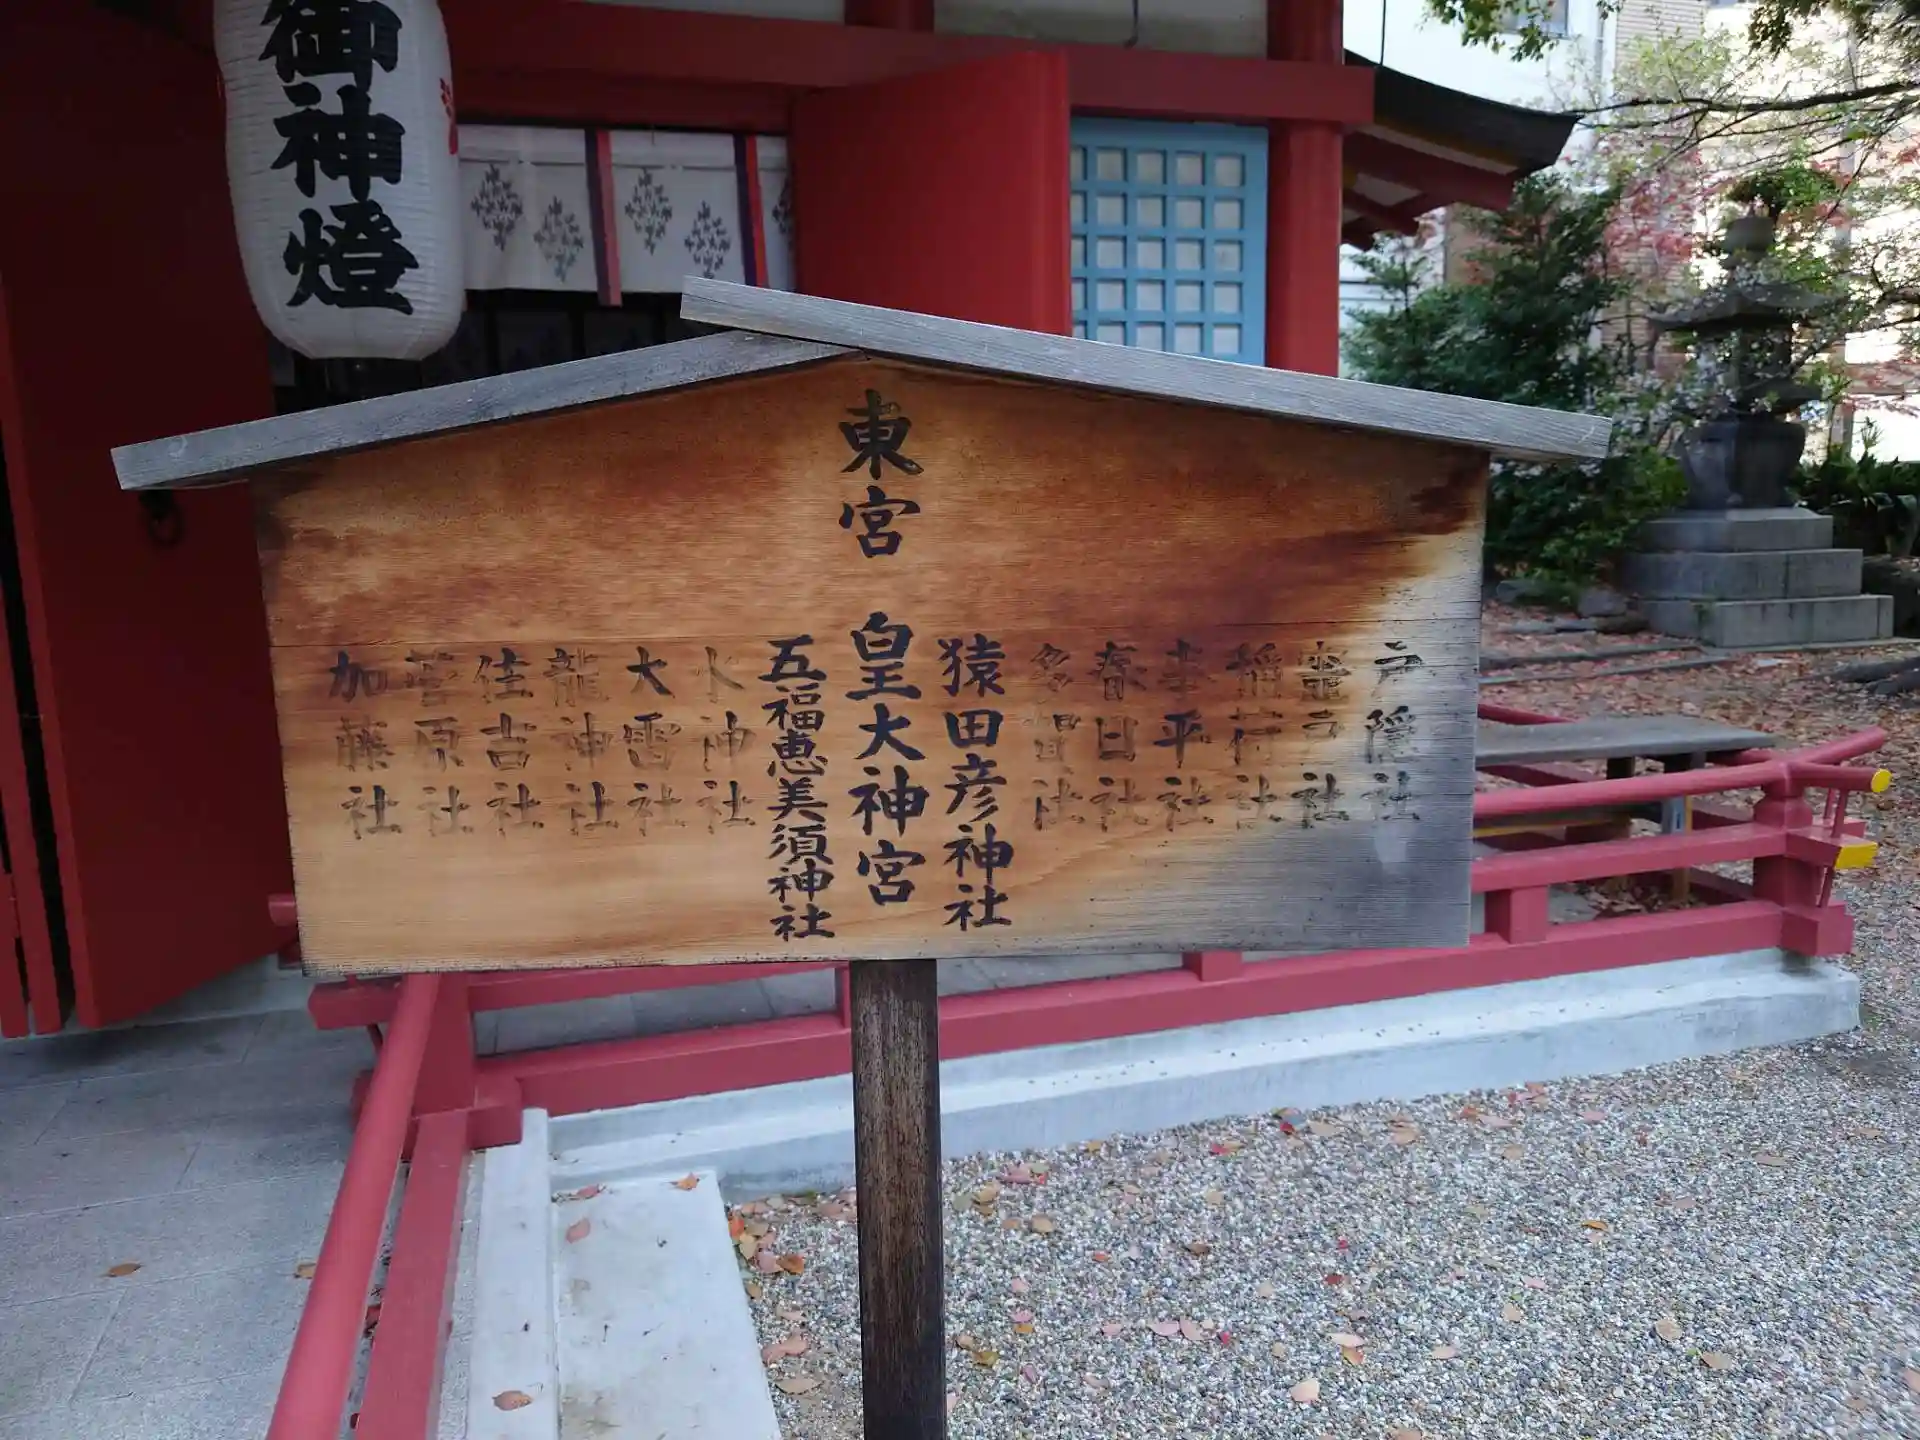 御神燈
東宮 皇大神宮
戸隠社
竈戸社
稲荷社
春日社
多賀社
猿田彦神社
五福恵美須神社
水神社
大雷社
龍神社
住吉社
菅原社
加藤社